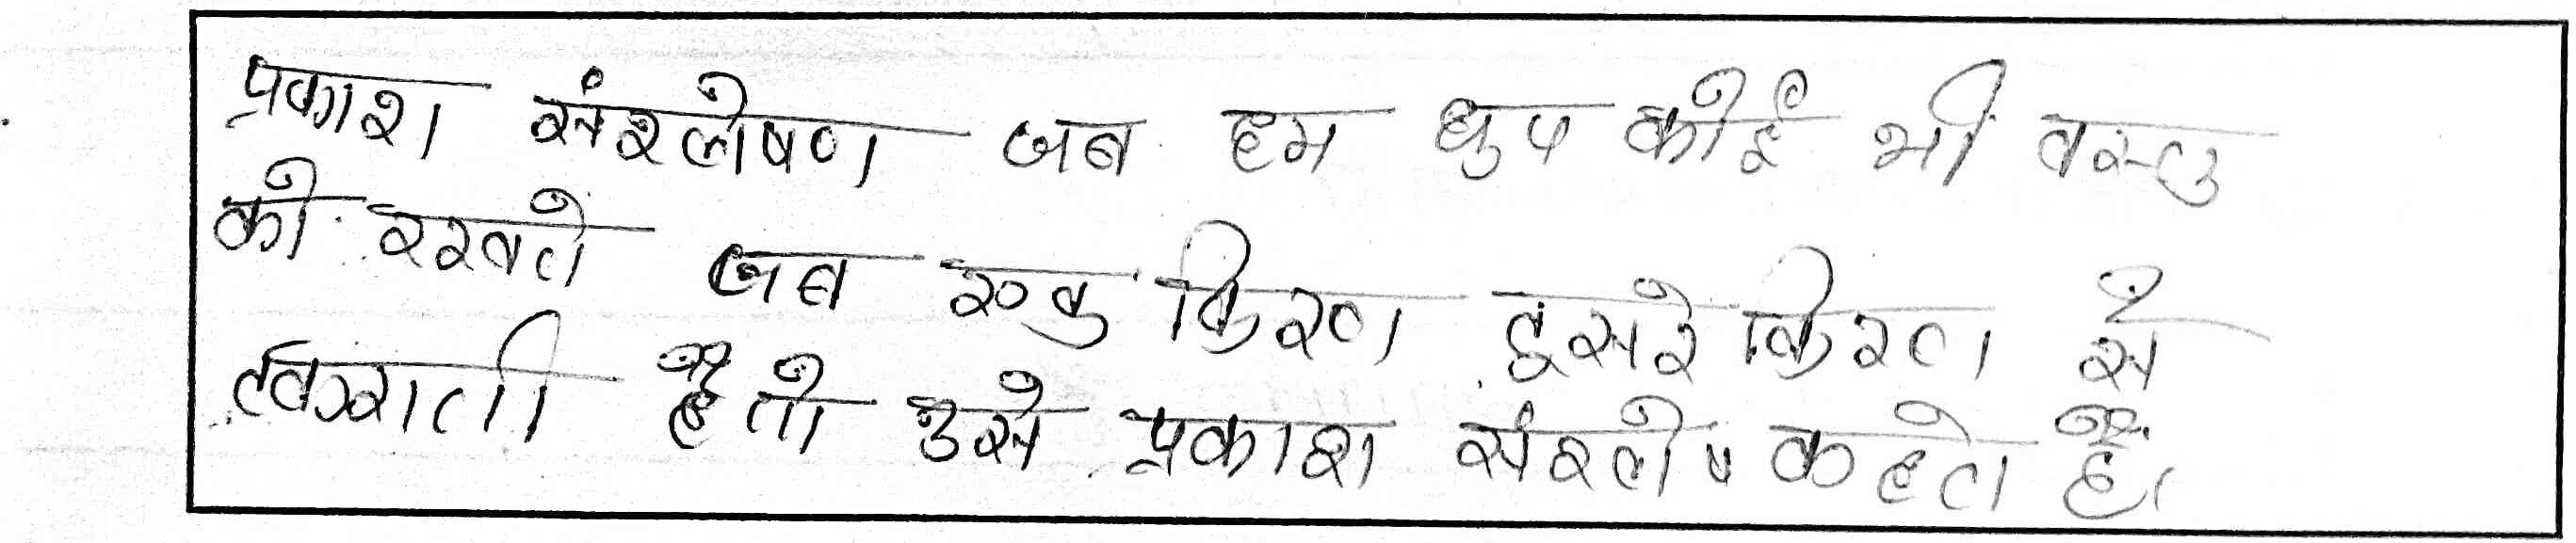 प्रकाश संश्लेषण जब हम धुप कोई भी वस्तु
को रखते जब एक किरण दुसरे किरण से
टकराती है तो उसे प्रकाश संश्लेष कहते हैं।